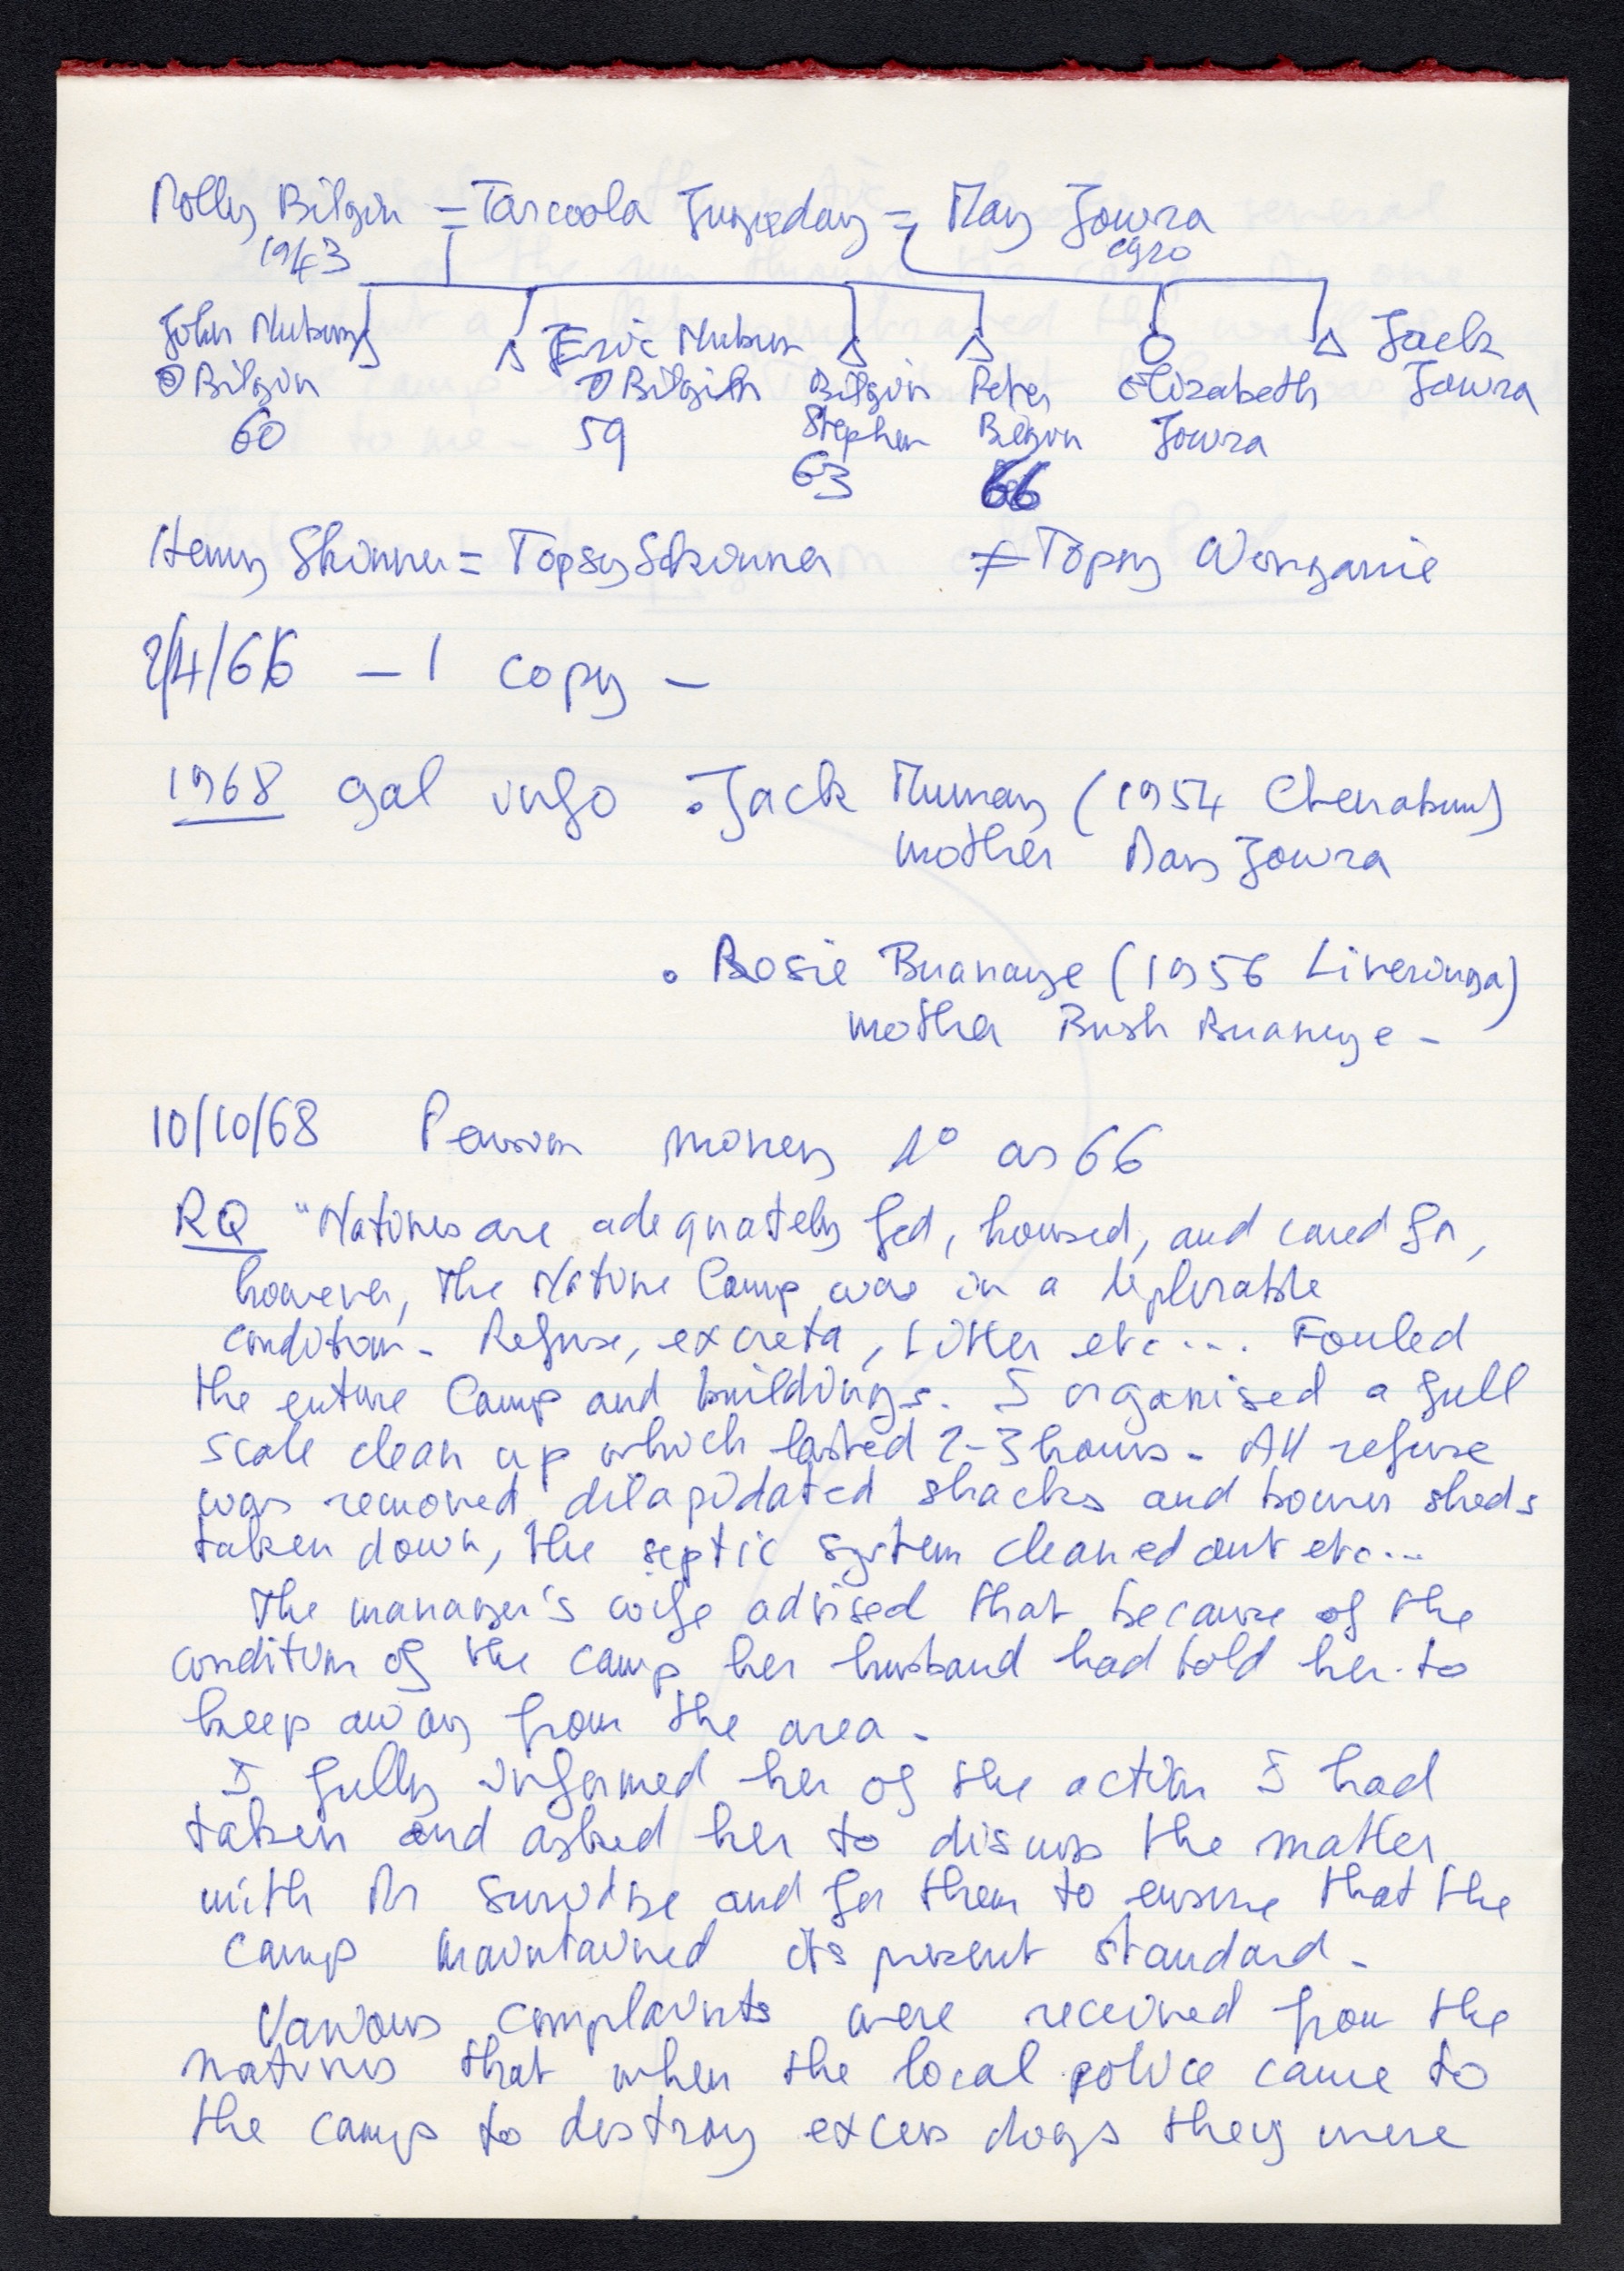 Polly Bilgin = Tarcoola Jugoday = May Jowra
1943 1920
John Nubun Eric Nubun Jack
Bilgin Bilgin Bilgin Peter Elizabeth Jowra
60 59 Stephen Bilgin Jowra
63 66
Henry Skinner = Topsy Skinner ≠ Topsy Worgamie
2/4/66 – 1 copy –
1968 gal info . Jack Mumay (1954 Cherrabun)
mother May Jowra
. Rosie Buanaye (1956 Liveringa)
mother Bush Buanuye –
10/10/68 Pension money 1° as 66
RQ "Natives are adequately fed, housed, and cared for,
however, the Native Camp was in a deplorable
condition. Refuse, excreta, litter etc... Fouled
the entire Camp and buildings. I organised a full
scale clean up which lasted 2-3 hours. All refuse
was removed dilapidated shacks and bower sheds
taken down, the septic system cleaned out etc...
The manager's wife advised that because of the
condition of the camp her husband had told her to
keep away from the area.
I fully informed her of the action I had
taken and asked her to discuss the matter
with Mr and for them to ensure that the
camp maintained its present standard.
Various complaints were received from the
natives that when the local police came to
the camp to destroy excess dogs they were